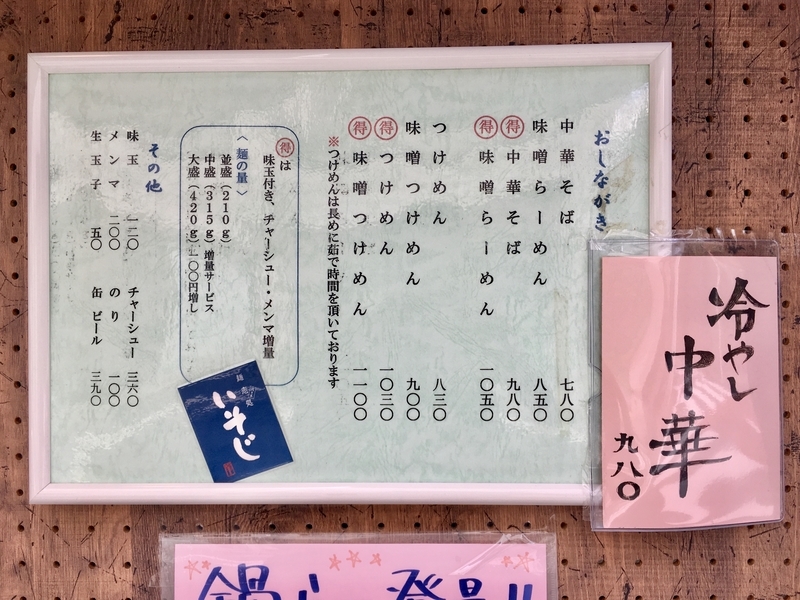 おしながき
中華そば 七八〇
味噌らーめん 八五〇
得 中華そば 九八〇
得 味噌らーめん 一〇五〇
つけめん 八三〇
味噌つけめん 九〇〇
得 つけめん 一〇三〇
得 味噌つけめん 一一〇〇
※つけめんは長めに茹で時間を頂いております
得は
味玉付き、チャーシュー・メンマ増量
〈麺の量〉
並盛(210g)
中盛(315g)増量サービス
大盛(420g)一〇〇円増し
その他
味玉 一二〇
メンマ 二〇〇
生玉子 五〇
チャーシュー 三六〇
のり 一〇〇
缶ビール 三九〇
いそじ
冷やし
中華
九八〇